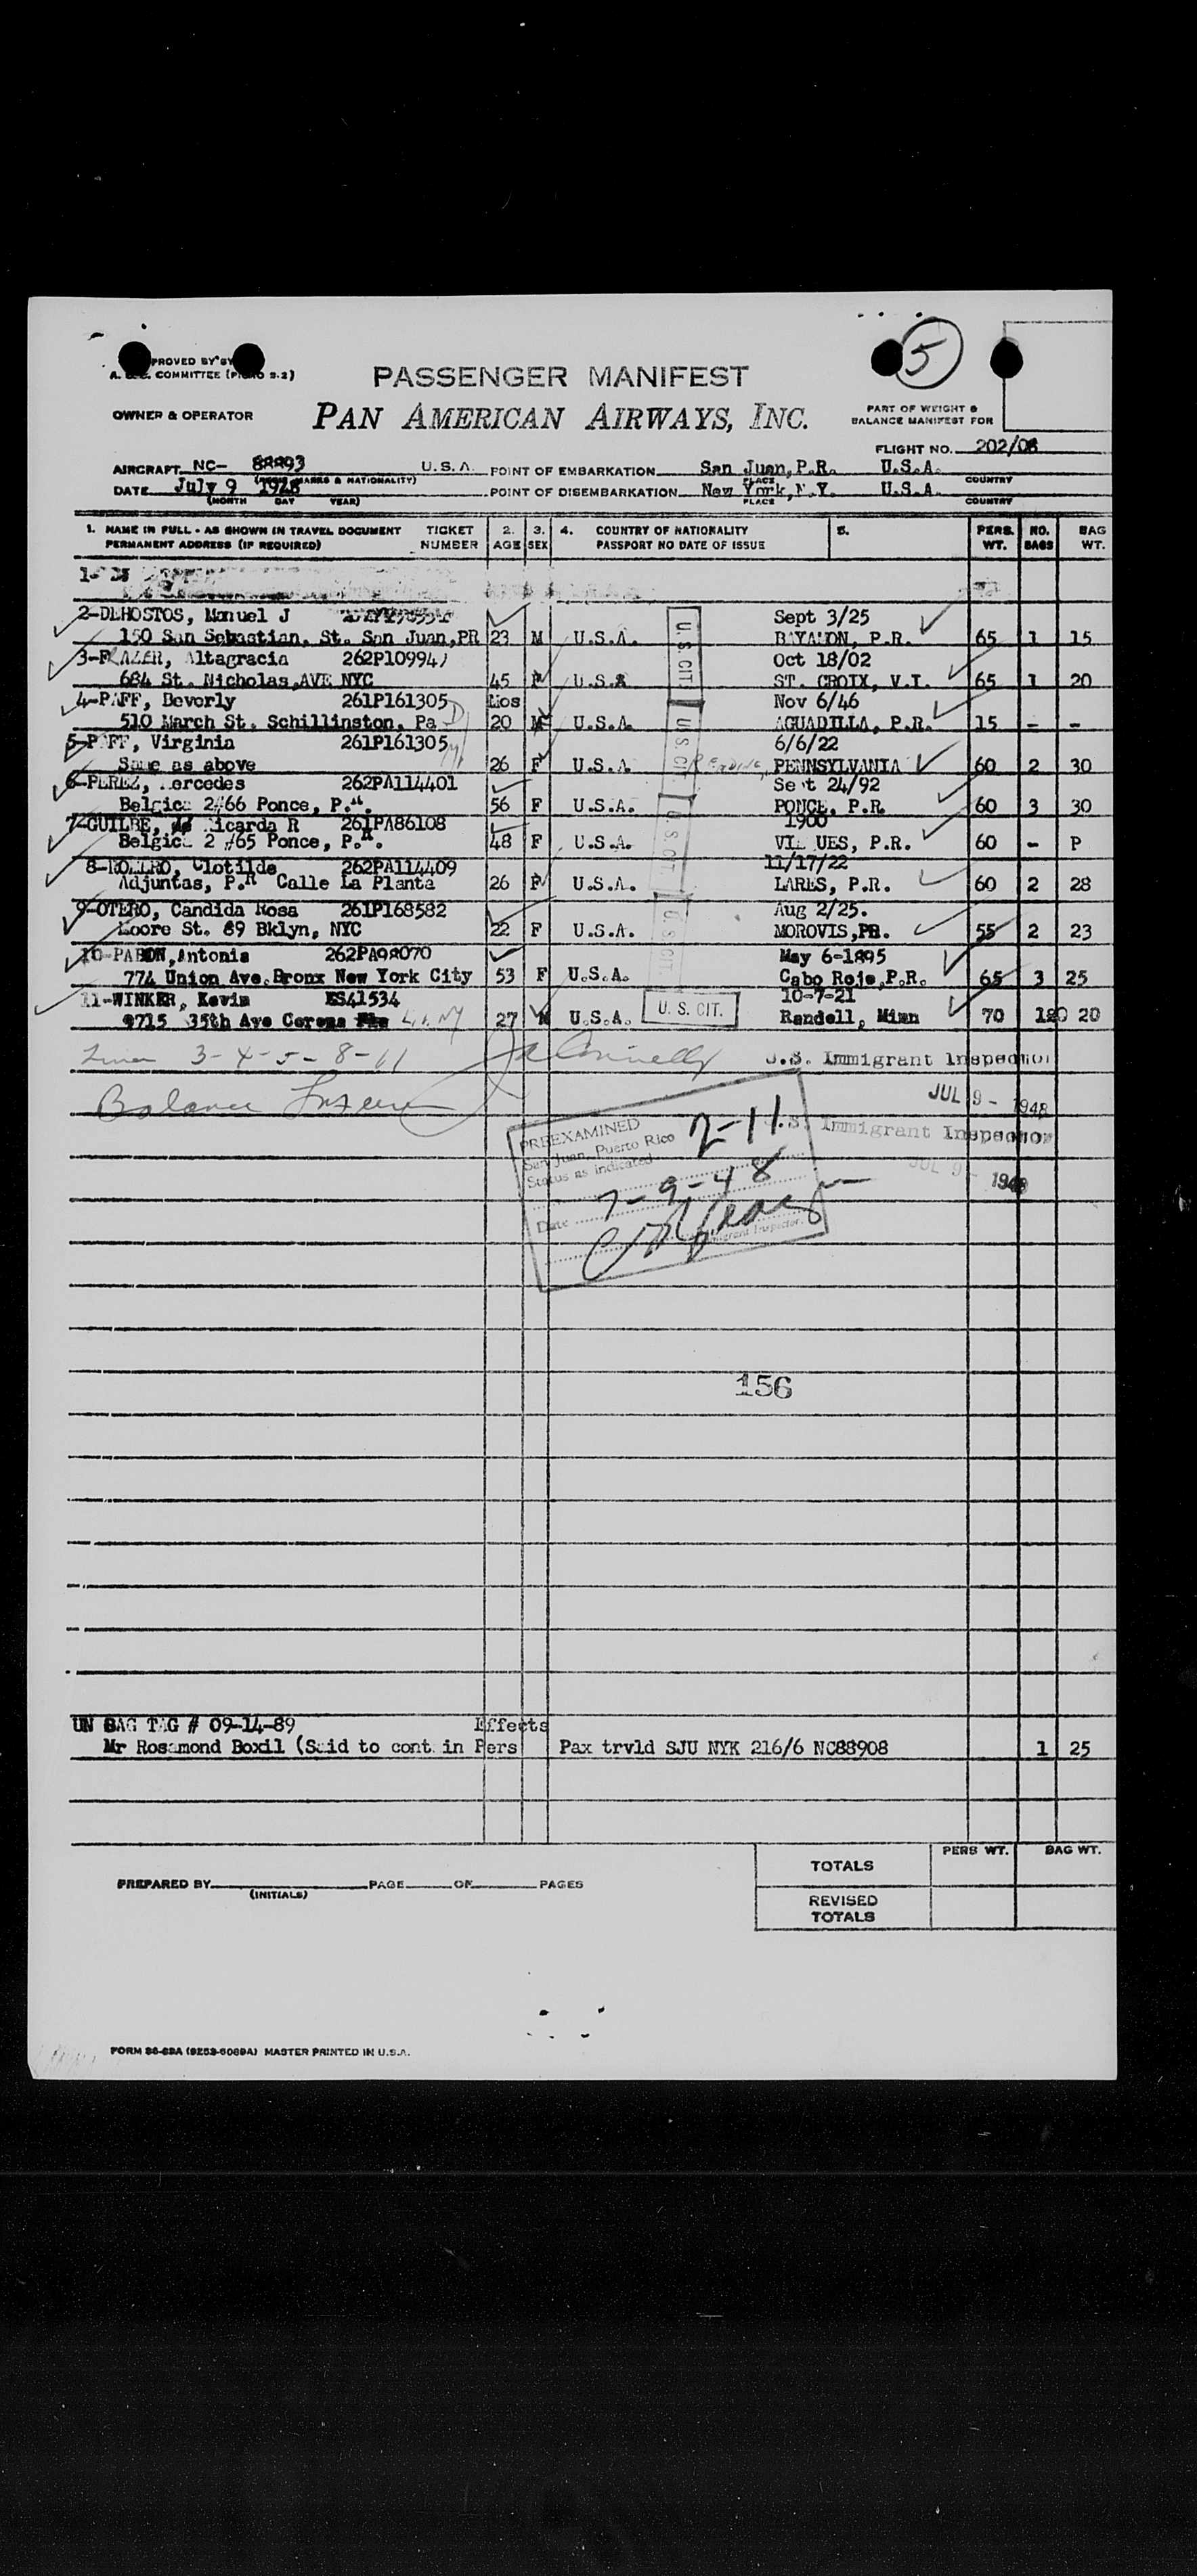 5
PROVED BY
COMMITTEE
PASSENGER MANIFEST
OWNER & OPERATOR
PAN AMERICAN AIRWAYS, INC.
PART OF WEIGHT &
BALANCE MANIFEST FOR
FLIGHT NO. 202/08
AIRCRAFT NC- 88893 U.S.A. POINT OF EMBARKATION San Juan, P.R. U.S.A.
(MARKS & NATIONALITY) PLACE COUNTRY
DATE July 9 1948 POINT OF DISEMBARKATION New York, N.Y. U.S.A.
(MONTH DAY YEAR) PLACE COUNTRY
1. NAME IN FULL - AS SHOWN IN TRAVEL DOCUMENT TICKET 2. 3. 4. COUNTRY OF NATIONALITY 5. PERS. NO. BAG
PERMANENT ADDRESS (IF REQUIRED) NUMBER AGE SEX PASSPORT NO DATE OF ISSUE WT. BAGS WT.
1-
2-DEHOSTOS, Manuel J Sept 3/25
150 San Sebastian, St. San Juan, PR 23 M U.S.A. BAYAMON, P.R. 65 1 15
3-FRAZER, Altagracia 262P10994 Oct 18/02
684 St. Nicholas, AVE NYC 45 U.S.A ST. CROIX, V.I. 65 1 20
4-PAFF, Beverly 261P161305 Mos Nov 6/46
510 March St. Schillinston, Pa 20 U.S.A. AGUADILLA, P.R. 15 - -
5-PAFF, Virginia 261P161305 6/6/22
Same as above 26 F U.S.A. Reading, PENNSYLVANIA 60 2 30
6-PEREZ, Mercedes 262PA114401 Sept 24/92
Belgica 2 #66 Ponce, P.R. 56 F U.S.A. PONCE, P.R. 60 3 30
7-GUILBE, Ricarda R 261PA86108 1900
Belgica 2 #65 Ponce, P.R. 48 F U.S.A. VIEQUES, P.R. 60 - P
8-ROMERO, Clotilde 262PA114409 11/17/22
Adjuntas, P.R Calle La Planta 26 F U.S.A. LARES, P.R. 60 2 28
9-OTERO, Candida Rosa 261P168582 Aug 2/25.
Moore St. 89 Bklyn, NYC 22 F U.S.A. MOROVIS, PR. 55 2 23
10-PABON, Antonia 262PA98070 May 6-1895
774 Union Ave. Bronx New York City 53 F U.S.A. Cabo Rojo, P.R. 65 3 25
11-WINKER, Kevin ES41534 10-7-21
9715 35th Ave Corona L.I. NY 27 M U.S.A. Randell, Minn 70 1 20
U.S. CIT.
U.S. CIT.
U.S. CIT.
U.S. CIT.
U. S. CIT.
Lines 3-4-5-8-11 U.S. Immigrant Inspector
JUL 9 - 1948
Balance
U.S. Immigrant Inspector
JUL 9 - 1948
PREEXAMINED 2-11
San Juan, Puerto Rico
Status as indicated
Date 7-9-48
Immigrant Inspector
156
UN BAG TAG # 09-14-89 Effects
Mr Rosamond Boxil (Said to cont in Pers Pax trvld SJU NYK 216/6 NC88908 1 25
PERS WT. BAG WT.
TOTALS
PREPARED BY PAGE OF PAGES
(INITIALS)
REVISED
TOTALS
FORM 36-83A (9252-6089A) MASTER PRINTED IN U.S.A.